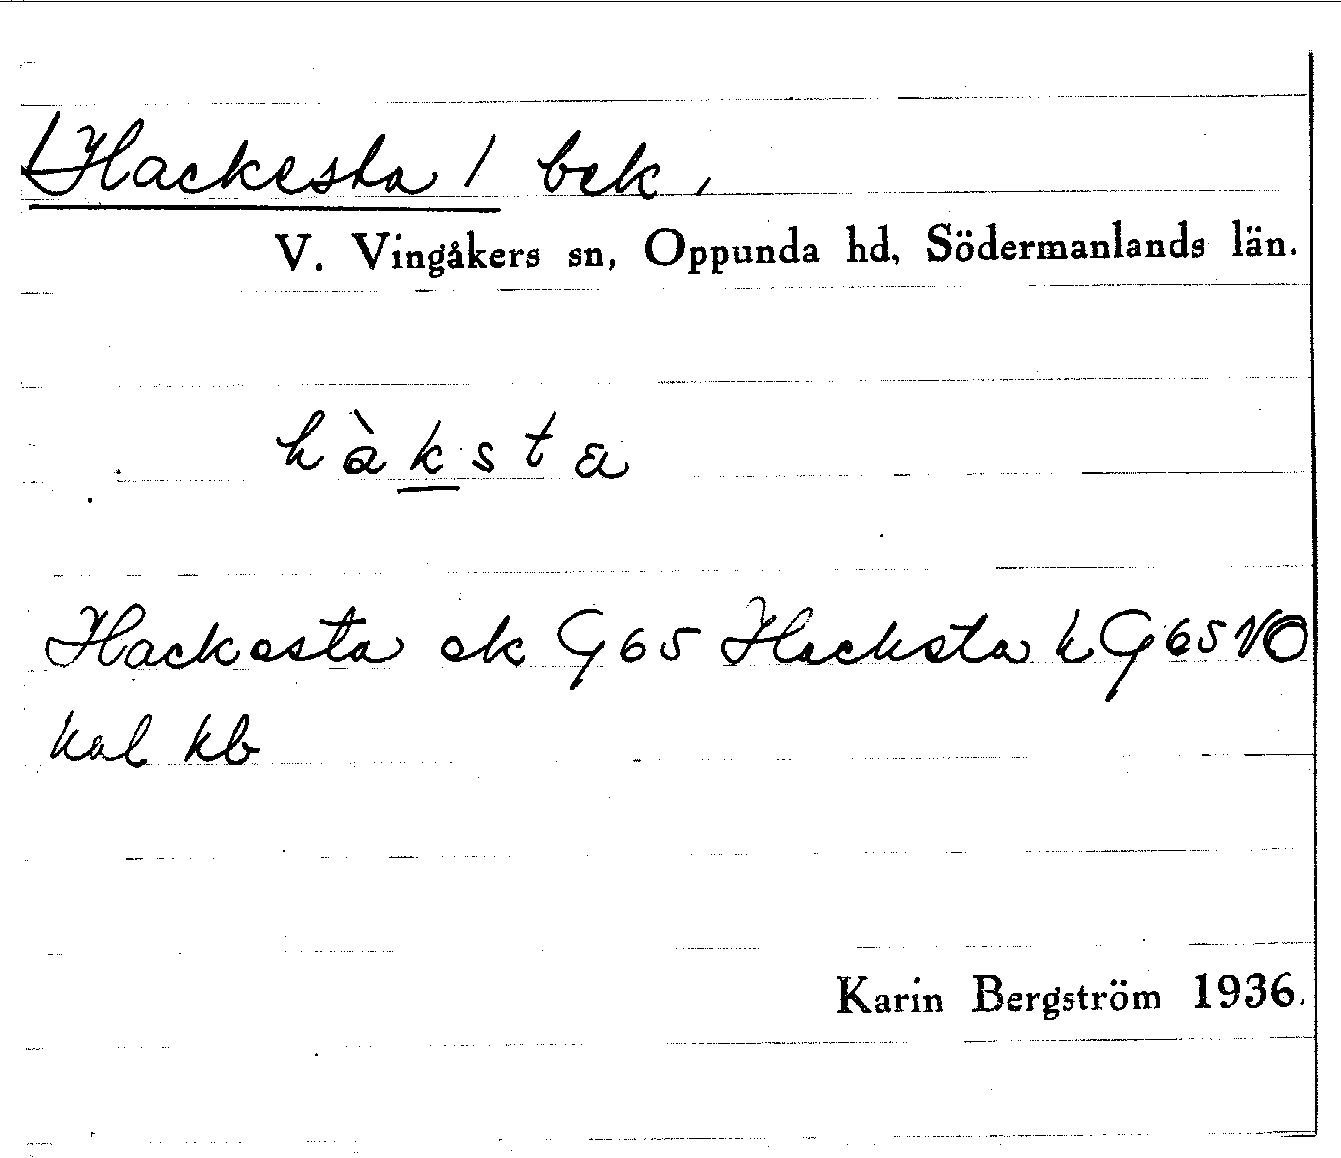 /Hackesta/ bek,
V. Vingåkers sn, Oppunda hd, Södermanlands län.
hàksta
Hackesta ek G65 Hacksta k G65 VO
kal kb
Karin Bergström 1936.